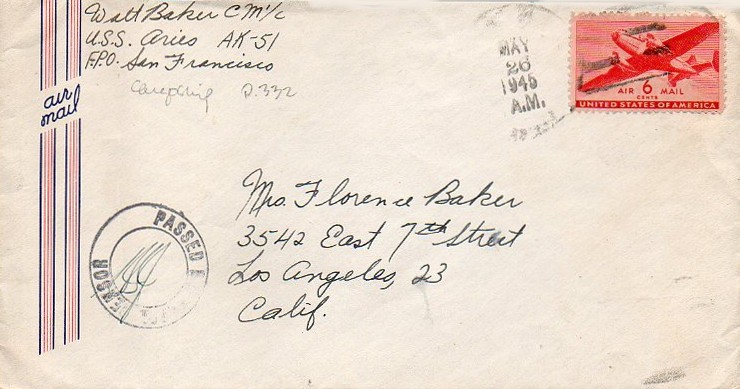 Walt Baker CM 1/c
U.S.S. Aries AK-51
F.P.O. San Francisco
air
mail
MAY
26
1945
A.M.
AIR 6 MAIL
CENTS
UNITED STATES OF AMERICA
PASSED
Mrs. Florence Baker
3542 East 7th Street
Los Angeles, 23
Calif.